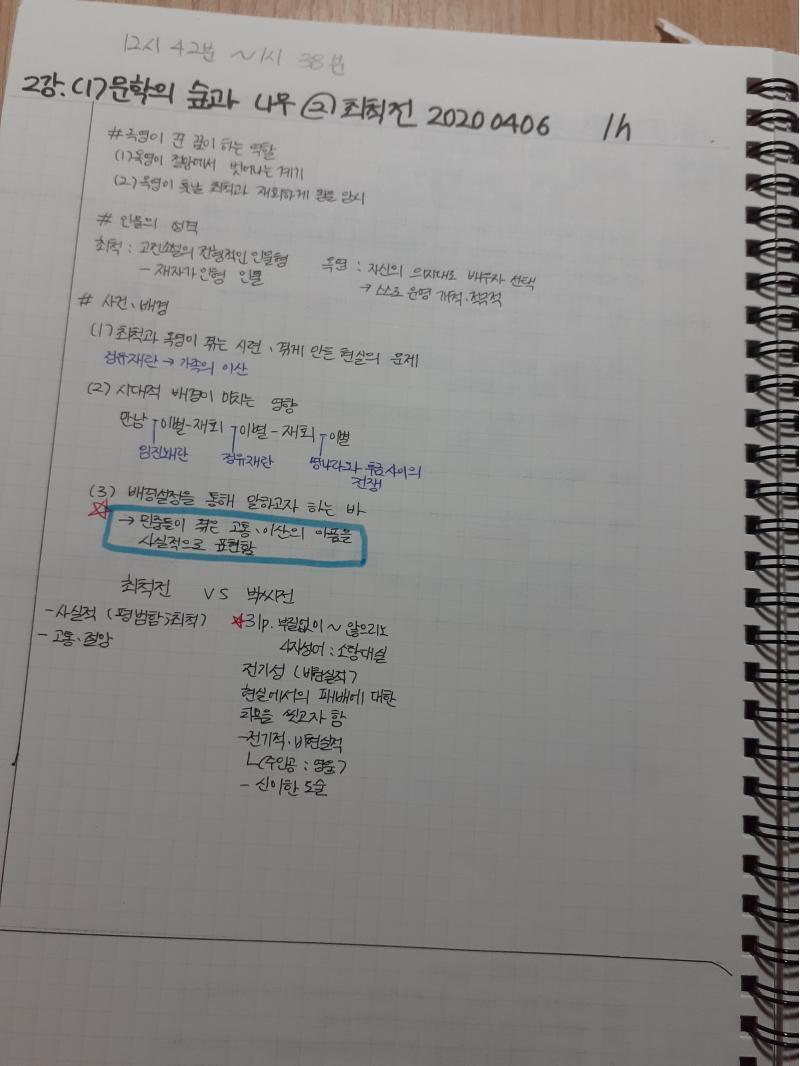 12시 42분 ~ 1시 38분
2강. (1) 문학의 숲과 나무 (2) 최척전 20200406 1h
# 옥영이 꾼 꿈이 하는 역할
(1) 옥영이 절망에서 벗어나는 계기
(2) 옥영이 훗날 최척과 재회하게 됨을 암시
# 인물의 성격
최척 : 고전소설의 전형적인 인물형
- 재자가인형 인물
옥영 : 자신의 의지대로 배우자 선택
→ 스스로 운명 개척·적극적
# 사건、배경
(1) 최척과 옥영이 겪는 시련、겪게 만든 현실의 문제
정유재란 → 가족의 이산
(2) 시대적 배경이 미치는 영향
만남 - 이별 - 재회 - 이별 - 재회 - 이별
임진왜란 정유재란 명나라와 후금 사이의
전쟁
(3) 배경설정을 통해 말하고자 하는 바
→ 민중들이 겪은 고통、이산의 아픔을
사실적으로 표현함
최척전 VS 박씨전
- 사실적 (평범함;최척)
- 고통·절망
☆31p. 부질없이 ~ 않으리노
4자성어 : 소탐대실
전기성 (비현실적)
현실에서의 패배에 대한
치욕을 씻고자 함
- 전기적·비현실적
ㄴ(주인공 : 영웅)
- 신이한 도술